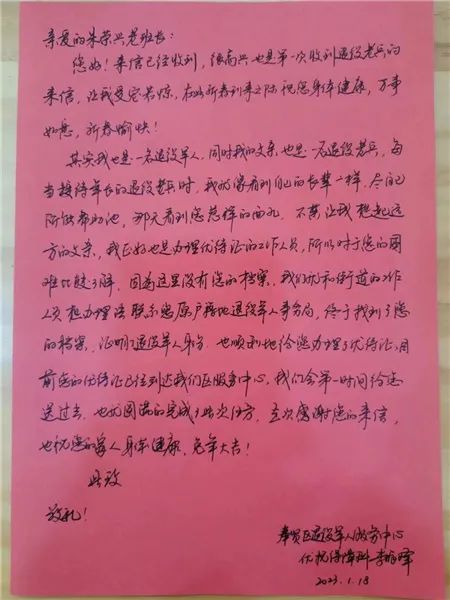 亲爱的朱荣兴老班长:
您好!来信已经收到,很高兴也是第一次收到退役老兵的
来信,让我受宠若惊,在此新春到来之际祝您身体健康,万事
如意,新春愉快!
其实我也是一名退役军人,同时我的父亲也是一名退役老兵,每
当接待年长的退役老兵时,我就像看到自己的长辈一样,尽自己
所能帮助他,那天看到您慈祥的面孔,不禁让我想起远
方的父亲,我正好也是办理优待证的工作人员,所以对于您的困
难比较了解,因为这里没有您的档案,我们就和街道的工作
人员想办法联系您原户籍地退役军人事务局,终于找到了您
的档案,证明了退役军人身份,也顺利地给您办理了优待证,目
前您的优待证已经到达我们区服务中心,我们会第一时间给您
送过去,也就圆满的完成了此次任务,再次感谢您的来信,
也祝您的家人身体健康,兔年大吉!
此致
敬礼!
奉贤区退役军人服务中心
优抚保障科 李
2023.1.18